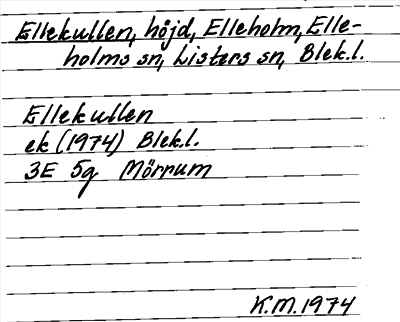 Ellekullen, höjd, Elleholm, Elle-
holms sn, Listers sn, Blek.l.
Ellekullen
ek (1974) Blek.l.
3E 5g Mörrum
K.M. 1974